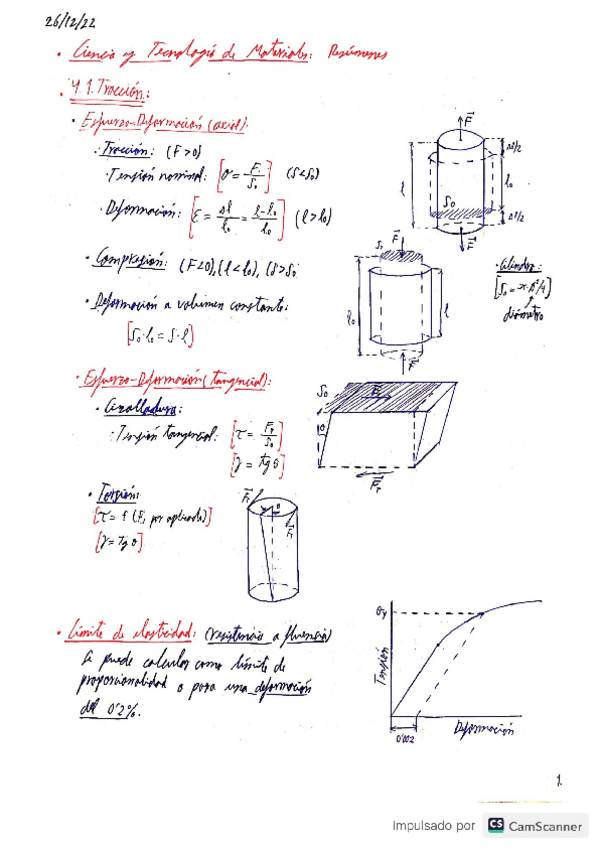 26/12/22
• Ciencia y Tecnología de Materiales: Resúmenes
• 4.1. Tracción:
• Esfuerzo-Deformación (axial):
• Tracción: (F>0)
• Tensión nominal: [σ = F/S₀] (S<S₀)
• Deformación: [ε = Δl/l₀ = l-l₀/l₀] (l>l₀)
• Compresión: (F<0), (l<l₀), (S>S₀
• Deformación a volumen constante:
[S₀·l₀ = S·l]
F
Δl/2
l
l₀
S₀
Δl/2
F
S₀
F
l₀
l
F
• Cilindro:
[S₀ = π·Ø²/4]
diámetro
• Esfuerzo-Deformación (tangencial):
• Cizalladura:
• Tensión tangencial: [τ = F_T/S₀]
[γ = tg θ]
S₀
F_T
θ
F_T
• Torsión:
[τ = f (F_T por aplicada)]
[γ = tg θ]
F_T
θ
F_T
• Límite de elasticidad: (resistencia a fluencia)
Se puede calcular como límite de
proporcionalidad o para una deformación
del 0'2%.
σy
Tensión
0'002
Deformación
1
Impulsado por CS CamScanner